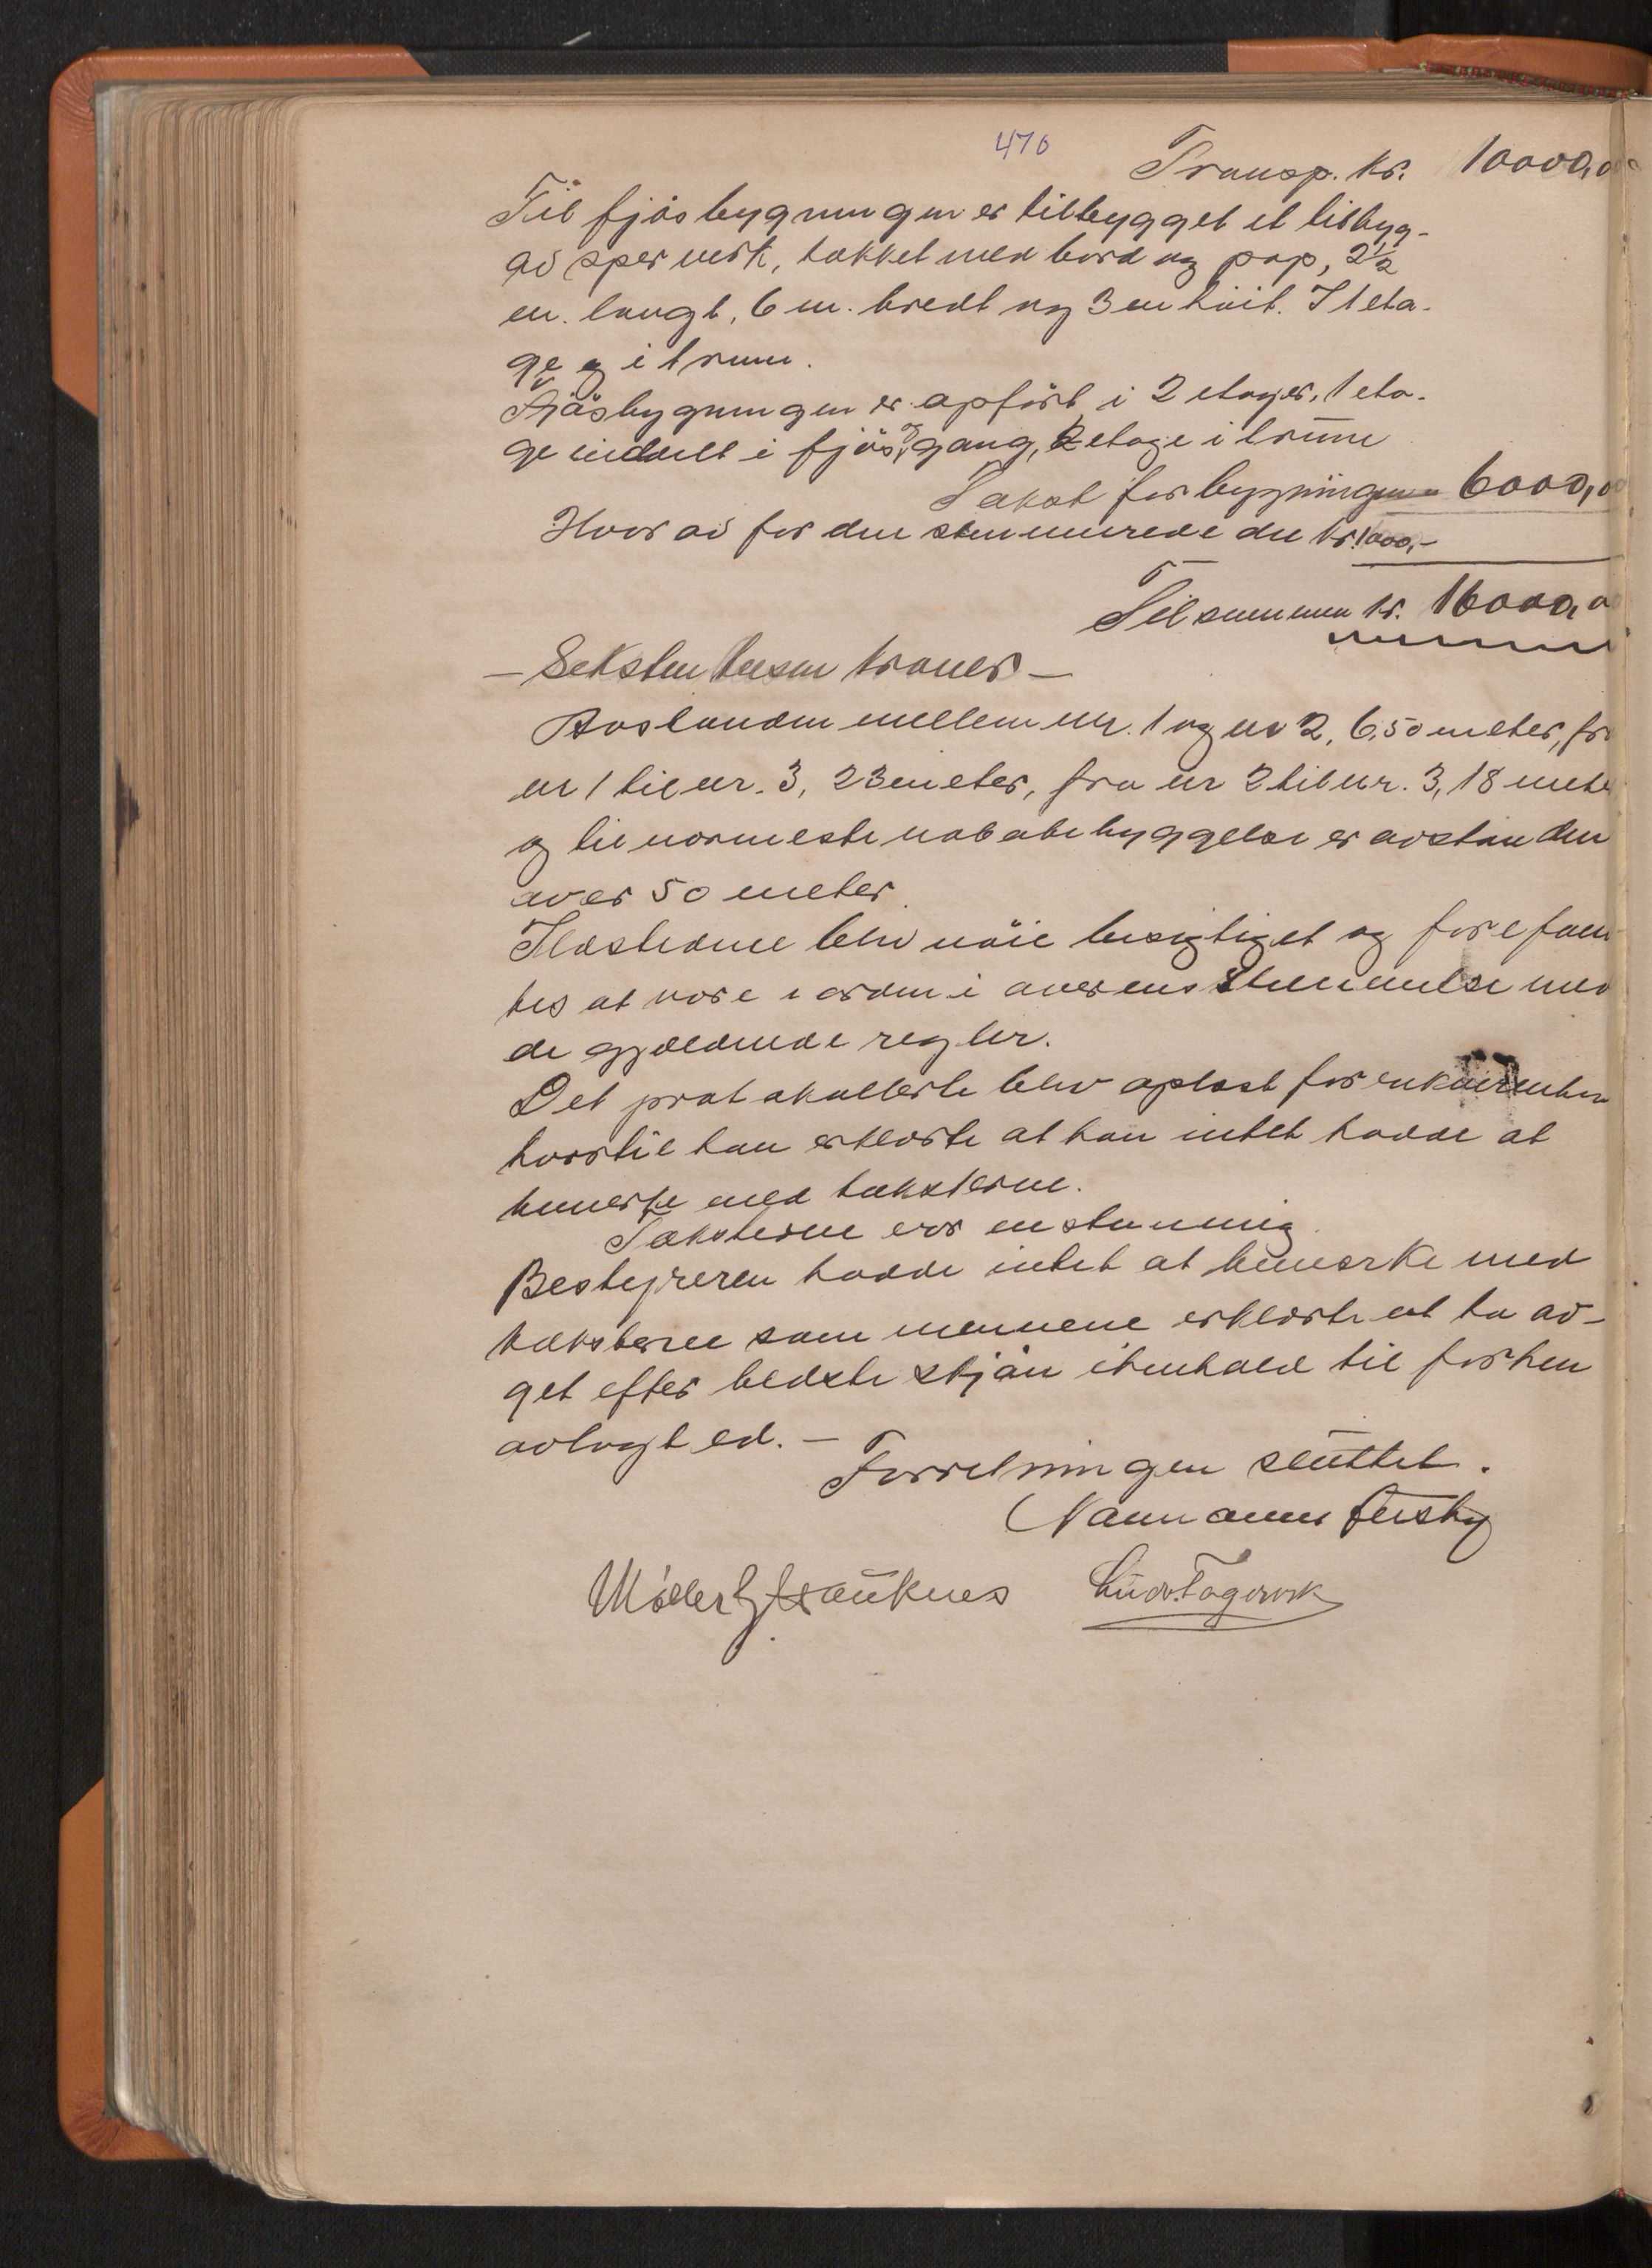 470
Transp. kr. 10000,0
Til fjøsbygningen er tilbygget et tilbyg-
av sperverk, takket med bord og pap, 2½
m. langt, 6 m. bredt og 3 m høit. I 1 eta-
ge og i 1 rum.
Fjøsbygningen er opført i 2 etager, 1 eta-
ge inddelt i fjøs, og gang, 2 etage i 1 rum
Takst for bygningen 6000,0
Hvor av for den stenmurede del kr. 1000,-
Tilsammen kr. 16000,0
- Seksten tusen kroner -
Avstanden mellem nr. 1 og nr 2, 6,50 meter, fra
nr 1 til nr. 3, 23 meter, fra nr 2 til nr. 3, 18 mete
og til nærmeste nabobebyggelse er avstanden
over 50 meter.
Ildstederne blev nøie besigtiget og forefan
tes at være i orden i overensstemmelse med
de gjældende regler.
Det protokollerte blev oplæst for rekvirenten
hvortil han erklærte at han intet hadde at
bemerke med taksterne.
Taksterne var enstemmig.
Bestyreren hadde intet at bemerke med
taksterne som mennene erklærte at ha av-
get efter bedste skjøn i henhold til forhen
avlagt ed. -
Forretningen sluttet.